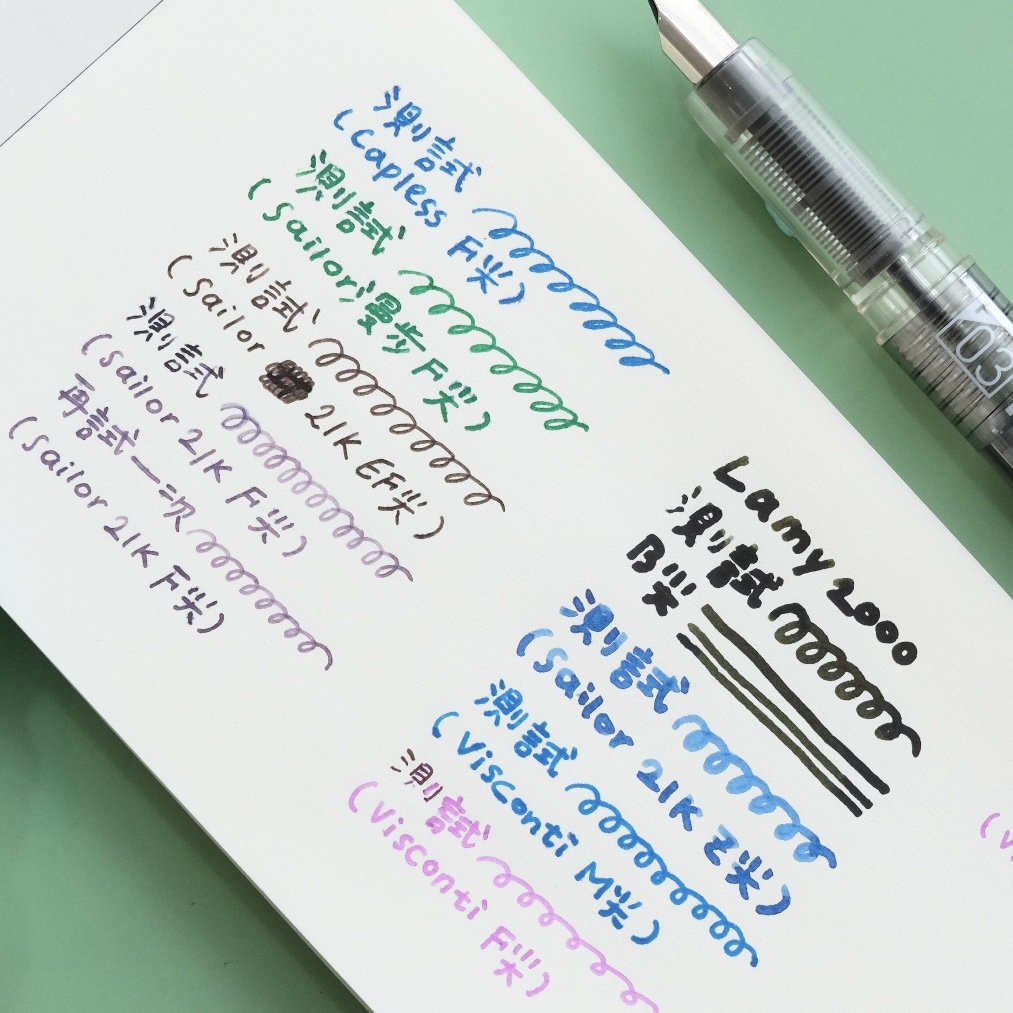 測試
(Capless F尖)
測試
(Sailor漫步F尖)
測試
(Sailor 21K EF尖)
測試
(Sailor 21K F尖)
再試一次
(Sailor 21K F尖)
Lamy 2000
測試
B尖
測試
(Sailor 21K Z尖)
測試
(Visconti M尖)
測試
(Visconti F尖)
03